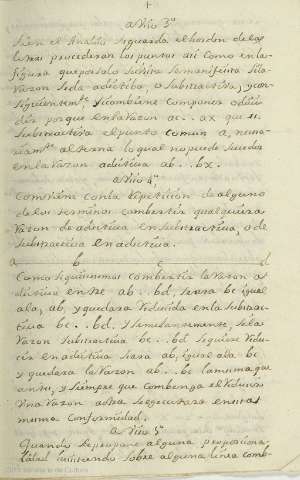 a Vio 3º
Si en el Analisi seguarda el horden de las
letras procederan los puntos asi como en la
figura que por solo su hita semanifiesta sila
razon se da adictiba, o subtractiva, y con-
siguientemte si combiene componer o diui-
dir porque en la razon ac.. ax que es
subtractiva el punto comun a,
alterna lo qual no puede suceder
en la razon adictiua ab.. bx.
a Vio 4º
Combiene con la repeticion de alguno
de los terminos combertir qualquiera
razon de adictiua en subtractiua, o de
subtractiua en adictiua.
a b c d
Como si quisiesimos combertir la razon a
dictiua entre ab.. bd, sera bc igual
a la, ab, y quedara reducida en la subtrac-
tiua bc.. bd. y semejantemente, si la
razon subtractiua bc.. bd se quiere redu-
cir en adictiua sera ab, igual a la bc
y quedara la razon ab.. bc la misma que
antes, y siempre que combenga el reducir
una razon a otra se ejecutara en esta
misma conformidad.
a Vio 5º
Quando se propone alguna proporciona-
lidad insistiendo sobre alguna linea comb-